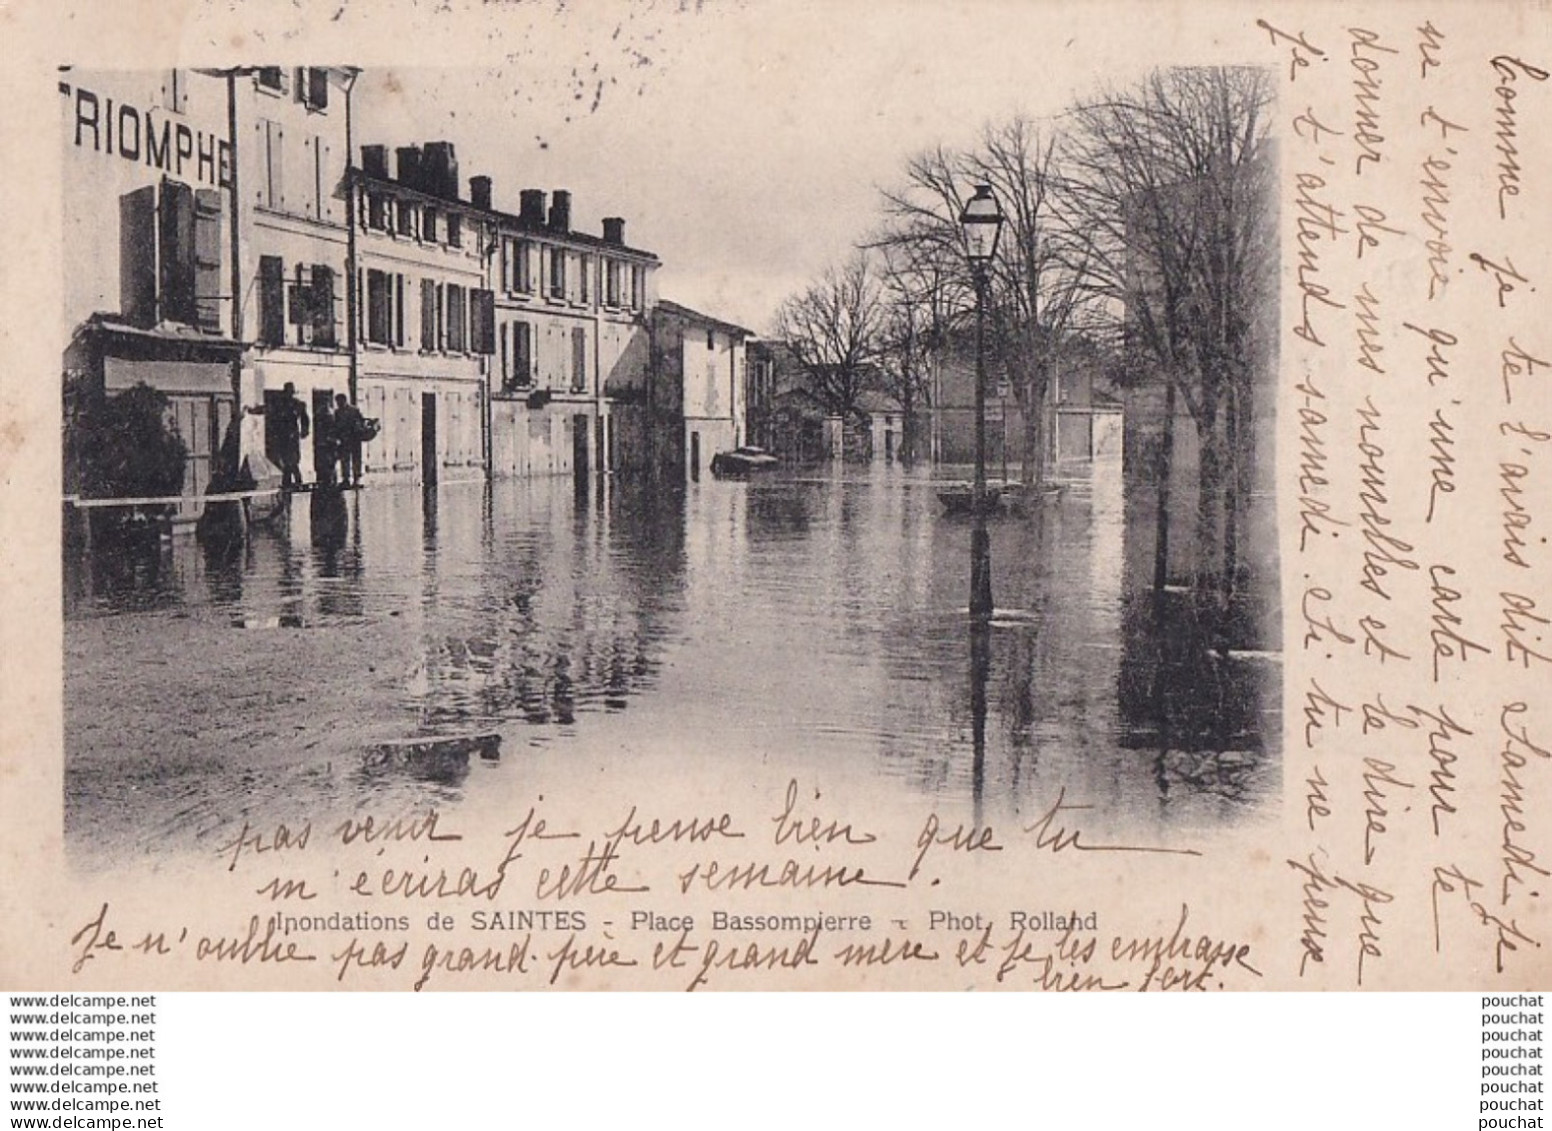 TRIOMPHE
Comme je te l'avais dit Samedi je
ne t'envoie qu'une carte pour te
donner de mes nouvelles et te dire que
je t'attends samedi. Si tu ne pense
pas venir je pense bien que tu
m'écriras cette semaine.
Inondations de SAINTES - Place Bassompierre - Phot. Rolland
Je n'oublie pas grand-père et grand mère et je les embrasse
bien fort.
www.delcampe.net
www.delcampe.net
www.delcampe.net
www.delcampe.net
www.delcampe.net
www.delcampe.net
www.delcampe.net
www.delcampe.net
pouchat
pouchat
pouchat
pouchat
pouchat
pouchat
pouchat
pouchat